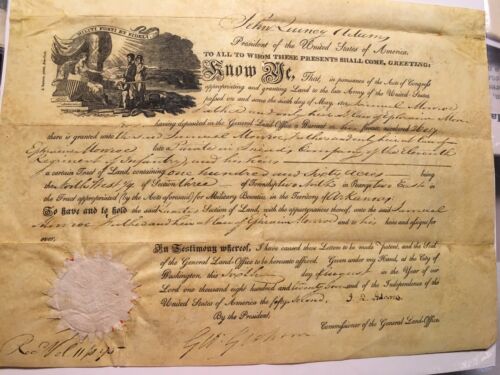 MILITI FORTI ET FIDELI
John Quincy Adams
President of the United States of America.
TO ALL TO WHOM THESE PRESENTS SHALL COME, GREETING:
Know Ye, That, in pursuance of the Acts of Congress
appropriating and granting Land to the late Army of the United States
passed on and since the sixth day of May, Samuel Monroe
having deposited in the General Land-Office a Warrant in his favour, numbered
there is granted unto the said Samuel Monroe
Ephraim Monroe late a Private in Company of the Eleventh
Regiment of Infantry, and his heirs
a certain Tract of Land, containing one hundred and sixty acres being
the North West 1/4 of Section three of Township two North in Range two East in
the Tract appropriated (by the Acts aforesaid) for Military Bounties, in the Territory of Arkansas
To have and to hold the said quarter Section of Land, with the appurtenances thereof, unto the said Samuel
Monroe Father and heir at law of Ephraim Monroe and to his heirs and assigns for-
ever.
In Testimony whereof, I have caused these Letters to be made Patent, and the Seal
of the General Land-Office to be hereunto affixed. Given under my Hand, at the City of
Washington, this day of August in the Year of our
Lord one thousand eight hundred and twenty seven and of the Independence of the
United States of America the fifty second. J. Q. Adams
By the President,
Geo. Graham
Commissioner of the General Land-Office.
Rec'd Vol